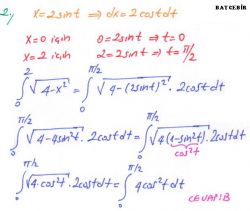 BATCEBİR
2., x=2sint ⇒ dx=2costdt
x=0 için 0=2sint ⇒ t=0
x=2 için 2=2sint ⇒ t=π/2
∫₀² √(4-x²) = ∫₀^(π/2) √(4-(2sint)²) . 2cost dt
∫₀^(π/2) √(4-4sin²t) . 2costdt = ∫₀^(π/2) √(4(1-sin²t)) . 2costdt
cos²t
∫₀^(π/2) √(4.cos²t) . 2costdt = ∫₀^(π/2) 4cos²t dt
CEVAP:B